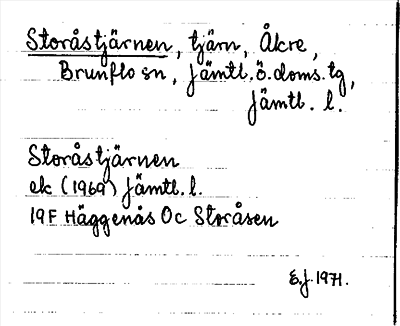 Storåstjärnen, tjärn, Åkre,
Brunflo sn, Jämtl. ö. doms. tg,
Jämtl. l.
Storåstjärnen
ek (1969) Jämtl. l.
19F Häggenås Oc Storåsen
E.J. 1971.